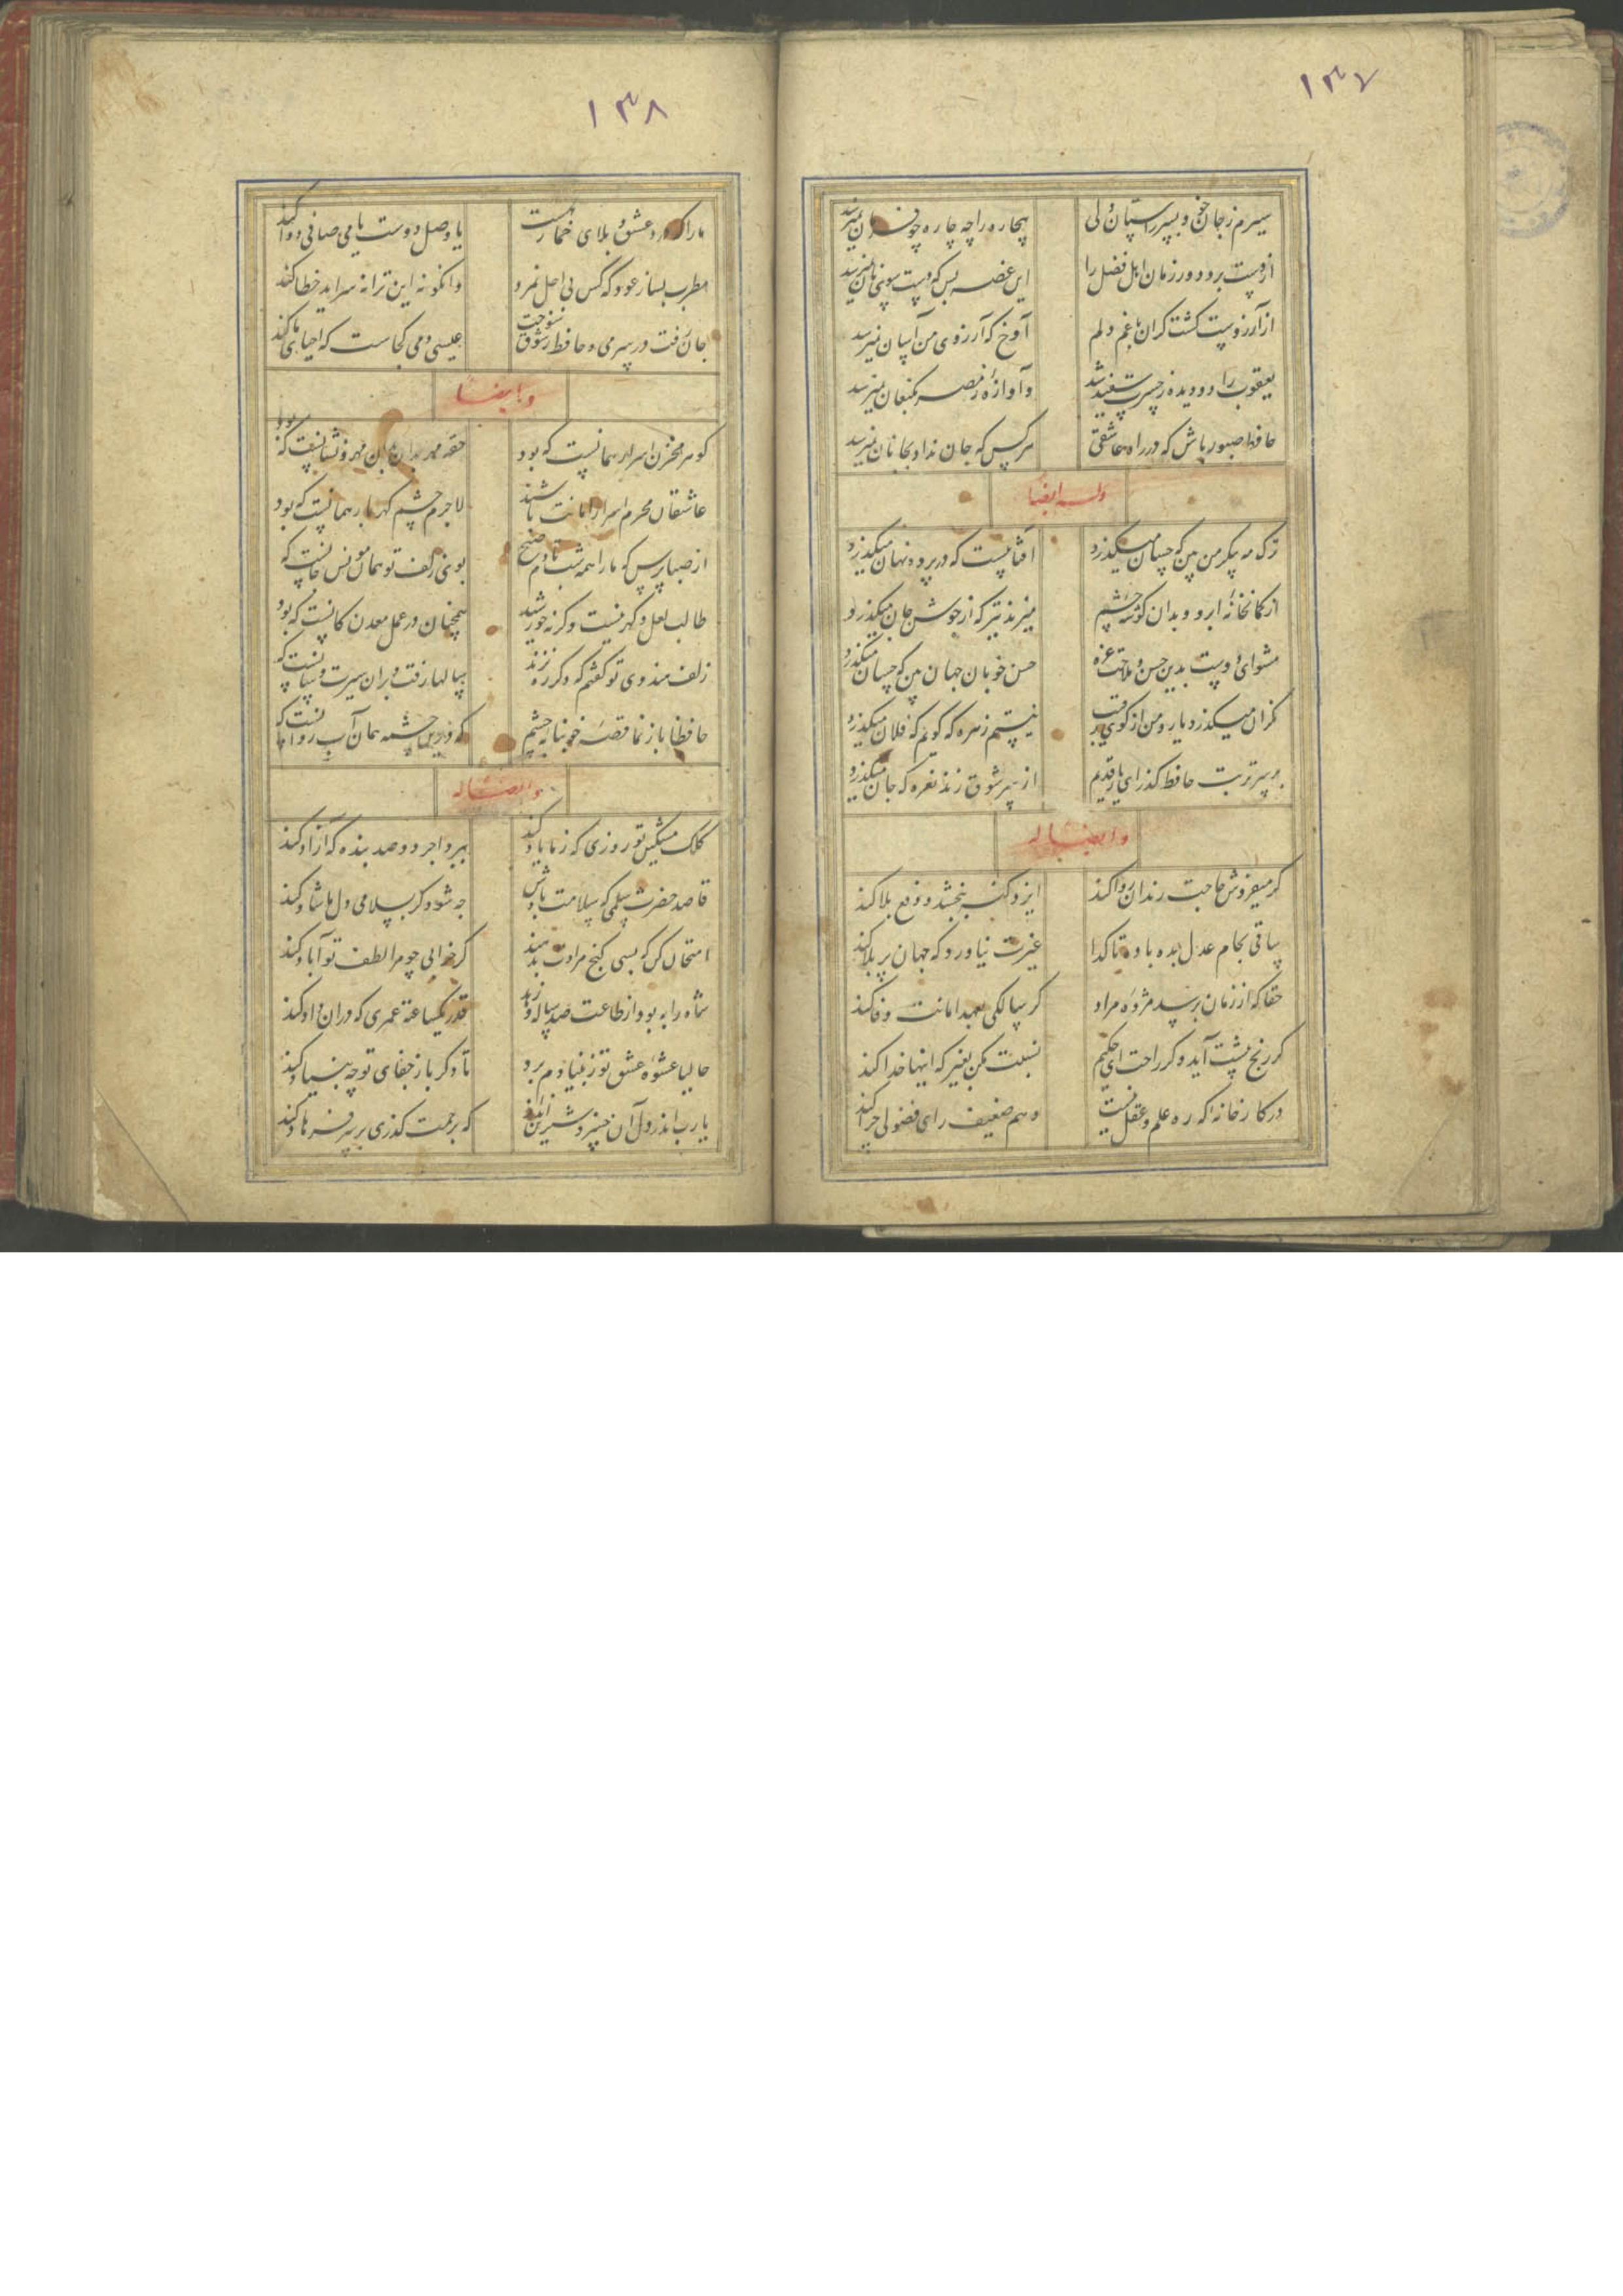 ۱۳۷
سیرم ز جان خود بسر راستان ولی بیچاره را چه چاره چو فرمان نمیرسد
از دست برد دور زمان اهل فضل را این غصه بس که دست سوی نان نمیرسد
از آرزوست گشت گران بار غم دلم آوخ که آرزوی من آسان نمیرسد
یعقوب را دو دیده ز حسرت سفید شد و آوازه ز مصر بکنعان نمیرسد
حافظ صبور باش که در راه عاشقی هر کس که جان نداد بجانان نمیرسد
وله ایضا
ترک مه پیکر من بین که چسان میگذرد آفتابیست که در پرده نهان میگذرد
از کمانخانه ابرو و بدان گوشه چشم میزند تیر که از جوشن جان میگذرد
مشو ای دوست بدین حسن و ملاحت غره حسن خوبان جهان بین که چسان میگذرد
نگران میگذرد یار و من از کوی رقیب نیستم زهره که گویم که فلان میگذرد
بر سر تربت حافظ گذر ای یار قدیم از سر شوق زند نعره که جان میگذرد
و ایضا له
گر میفروش حاجت رندان روا کند ایزد گنه ببخشد و دفع بلا کند
ساقی بجام عدل بده باده تا گدا غیرت نیاورد که جهان پر بلا کند
حقا که از زمان برسد مژده مراد گر سالکی بعهد امانت وفا کند
گر رنج پیشت آید و گر راحت ای حکیم نسبت مکن بغیر که اینها خدا کند
در کارخانه که ره علم و عقل نیست وهم ضعیف رای فضولی چرا کند
۱۳۸
ما را که درد عشق و بلای خمار هست یا وصل دوست یا می صافی دوا کند
مطرب بساز عود که کس بی اجل نمرد وانکو نه این ترانه سراید خطا کند
جان رفت در سر می و حافظ ز شوق سوخت عیسی دمی کجاست که احیای ما کند
و ایضا
گوهر مخزن اسرار همانست که بود حقه مهر بدان مهر و نشانست که بود
عاشقان محرم اسرار امانت باشند لاجرم چشم گهربار همانست که بود
از صبا پرس که ما را همه شب تا دم صبح بوی زلف تو همان مونس جانست که
طالب لعل و گهر نیست و گرنه خورشید همچنان در عمل معدن کانست که بود
زلف هندوی تو گفتم که دگر ره نزند سالها رفت و بران سیرت و سانست که
حافظا باز نما قصه خونابه چشم که درین چشمه همان آب روانست که
و ایضا له
کلک مشکین تو روزی که ز ما یاد کند ببرد اجر دو صد بنده که آزاد کند
قاصد حضرت سلمی که سلامت بادش چه شود گر بسلامی دل ما شاد کند
امتحان کن که بسی گنج مرادت بدهند گر خرابی چو مرا لطف تو آباد کند
شاه را به بود از طاعت صد ساله و زهد قدر یکساعته عمری که دران داد کند
حالیا عشوه عشق تو ز بنیادم برد تا دگر باز جفای تو چه بنیاد کند
یا رب اندر دل آن خسرو شیرین انداز که برحمت گذری بر سر فرهاد کند